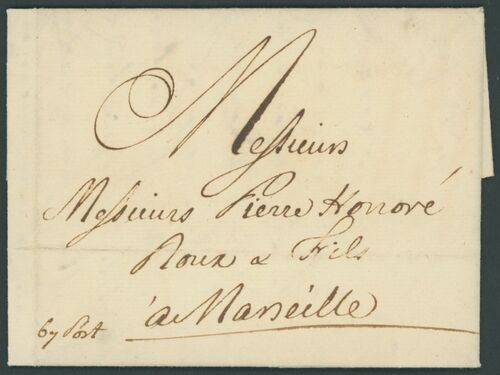 Messieurs
Messieurs Pierre Honoré
Roux & Fils
à Marseille
by Post